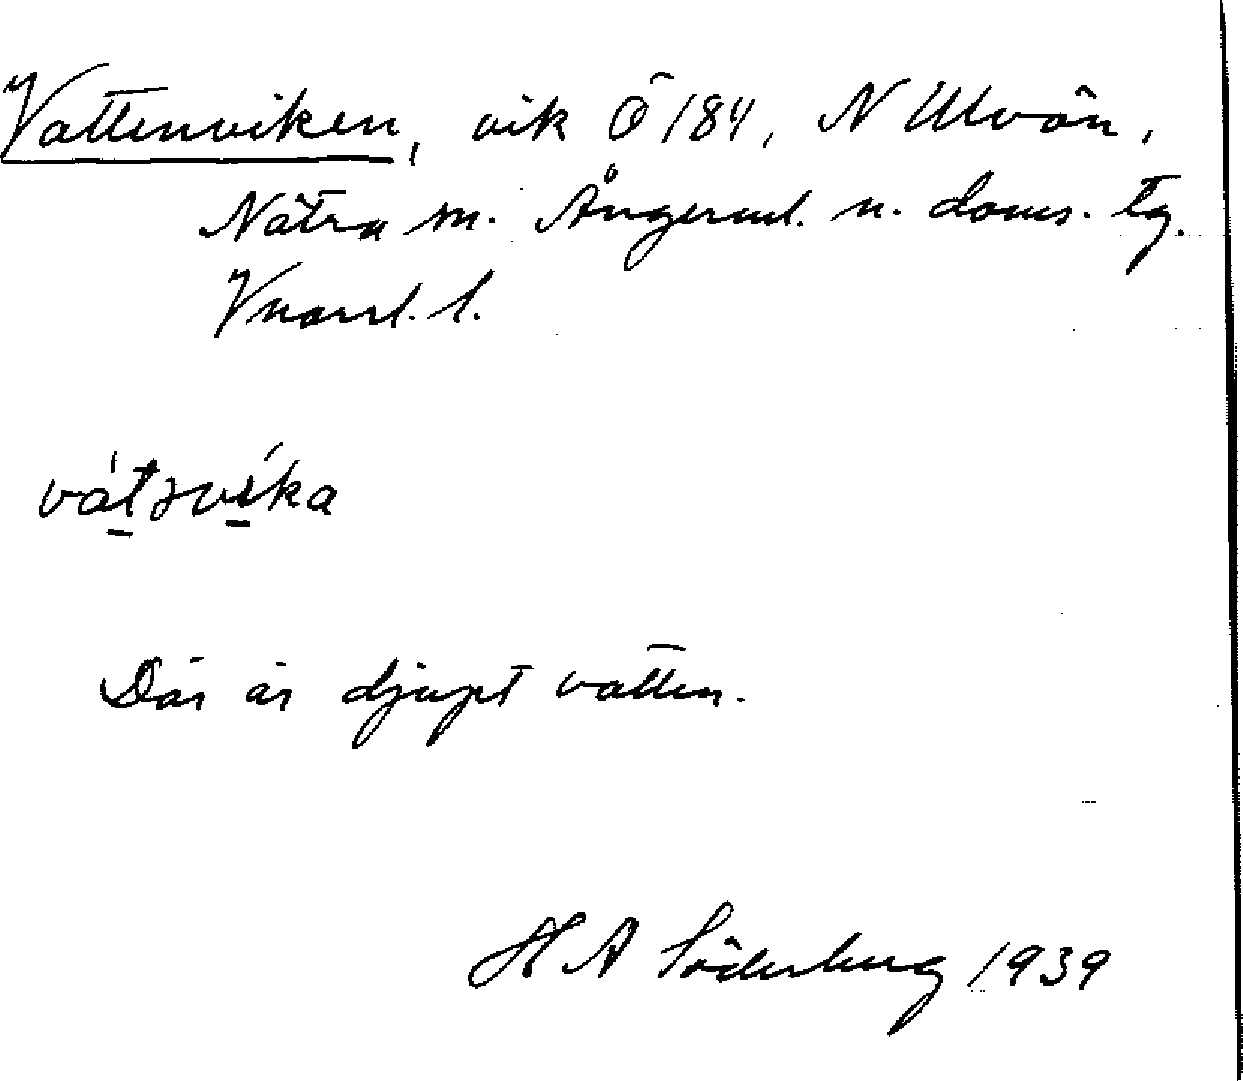 Vattenviken, vik Ö 184, N Ulvön,
Nätra sn. Ångerml. n. doms. tg.
Vnorrl. l.
vátəvíka
Där är djupt vatten.
H A Söderberg 1939